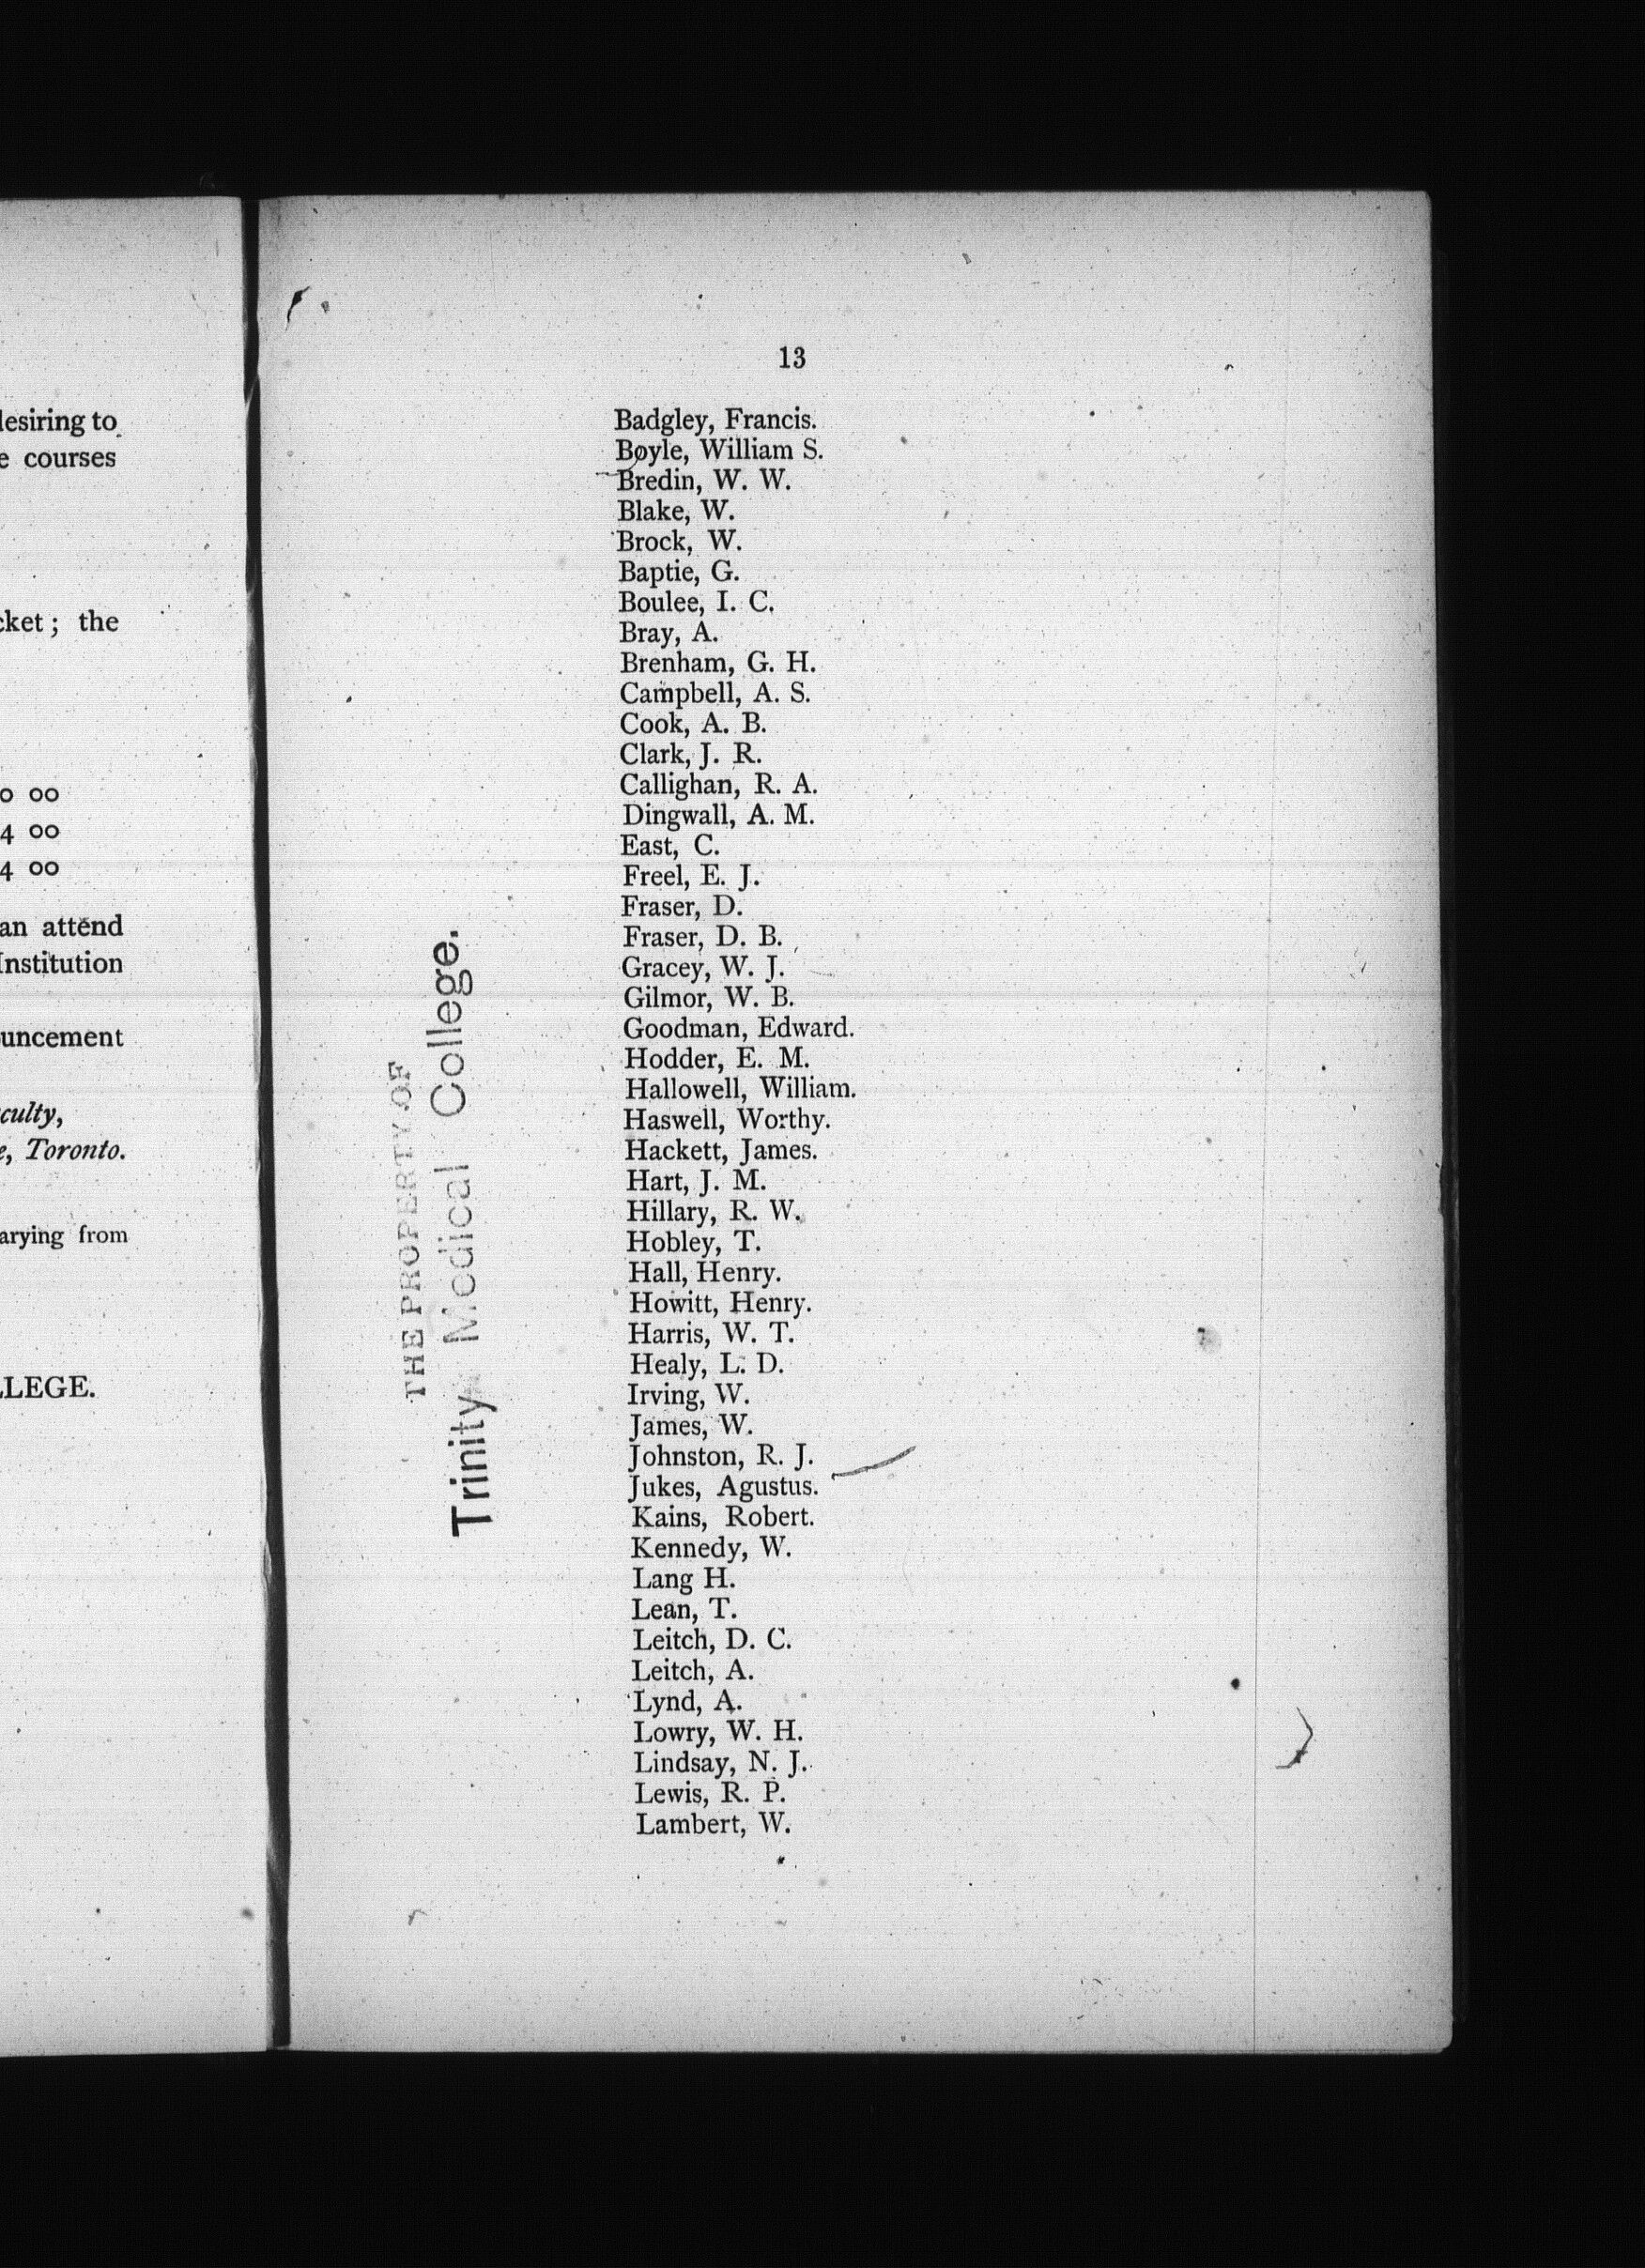 lesiring to
e courses
cket ; the
0 00
4 00
4 00
an attend
Institution
uncement
culty,
e, Toronto.
arying from
LLEGE.
13
Badgley, Francis.
Boyle, William S.
Bredin, W. W.
Blake, W.
Brock, W.
Baptie, G.
Boulee, I. C.
Bray, A.
Brenham, G. H.
Campbell, A. S.
Cook, A. B.
Clark, J. R.
Callighan, R. A.
Dingwall, A. M.
East, C.
Freel, E. J.
Fraser, D.
Fraser, D. B.
Gracey, W. J.
Gilmor, W. B.
Goodman, Edward.
Hodder, E. M.
Hallowell, William.
Haswell, Worthy.
Hackett, James.
Hart, J. M.
Hillary, R. W.
Hobley, T.
Hall, Henry.
Howitt, Henry.
Harris, W. T.
Healy, L. D.
Irving, W.
James, W.
Johnston, R. J.
Jukes, Agustus.
Kains, Robert.
Kennedy, W.
Lang H.
Lean, T.
Leitch, D. C.
Leitch, A.
Lynd, A.
Lowry, W. H.
Lindsay, N. J.
Lewis, R. P.
Lambert, W.
THE PROPERTY OF
Trinity Medical College.